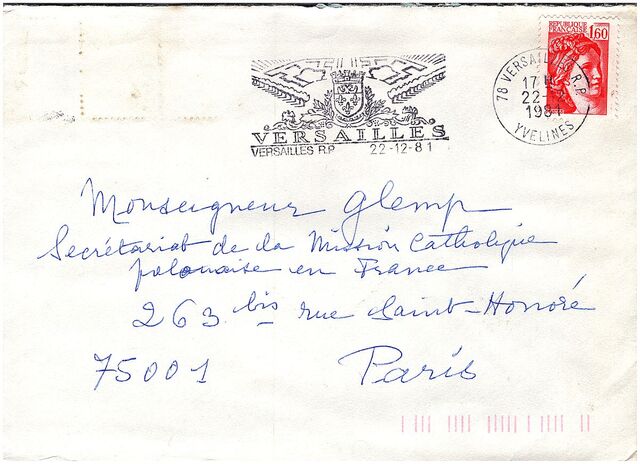 RÉPUBLIQUE
FRANÇAISE 1,60
78 VERSAILLES R.P
17 H
22-
1981
YVELINES
VERSAILLES
VERSAILLES R.P 22-12-81
Monseigneur Glemp
Secrétariat de la Mission Catholique
polonaise en France
263 bis rue Saint-Honoré
75001 Paris